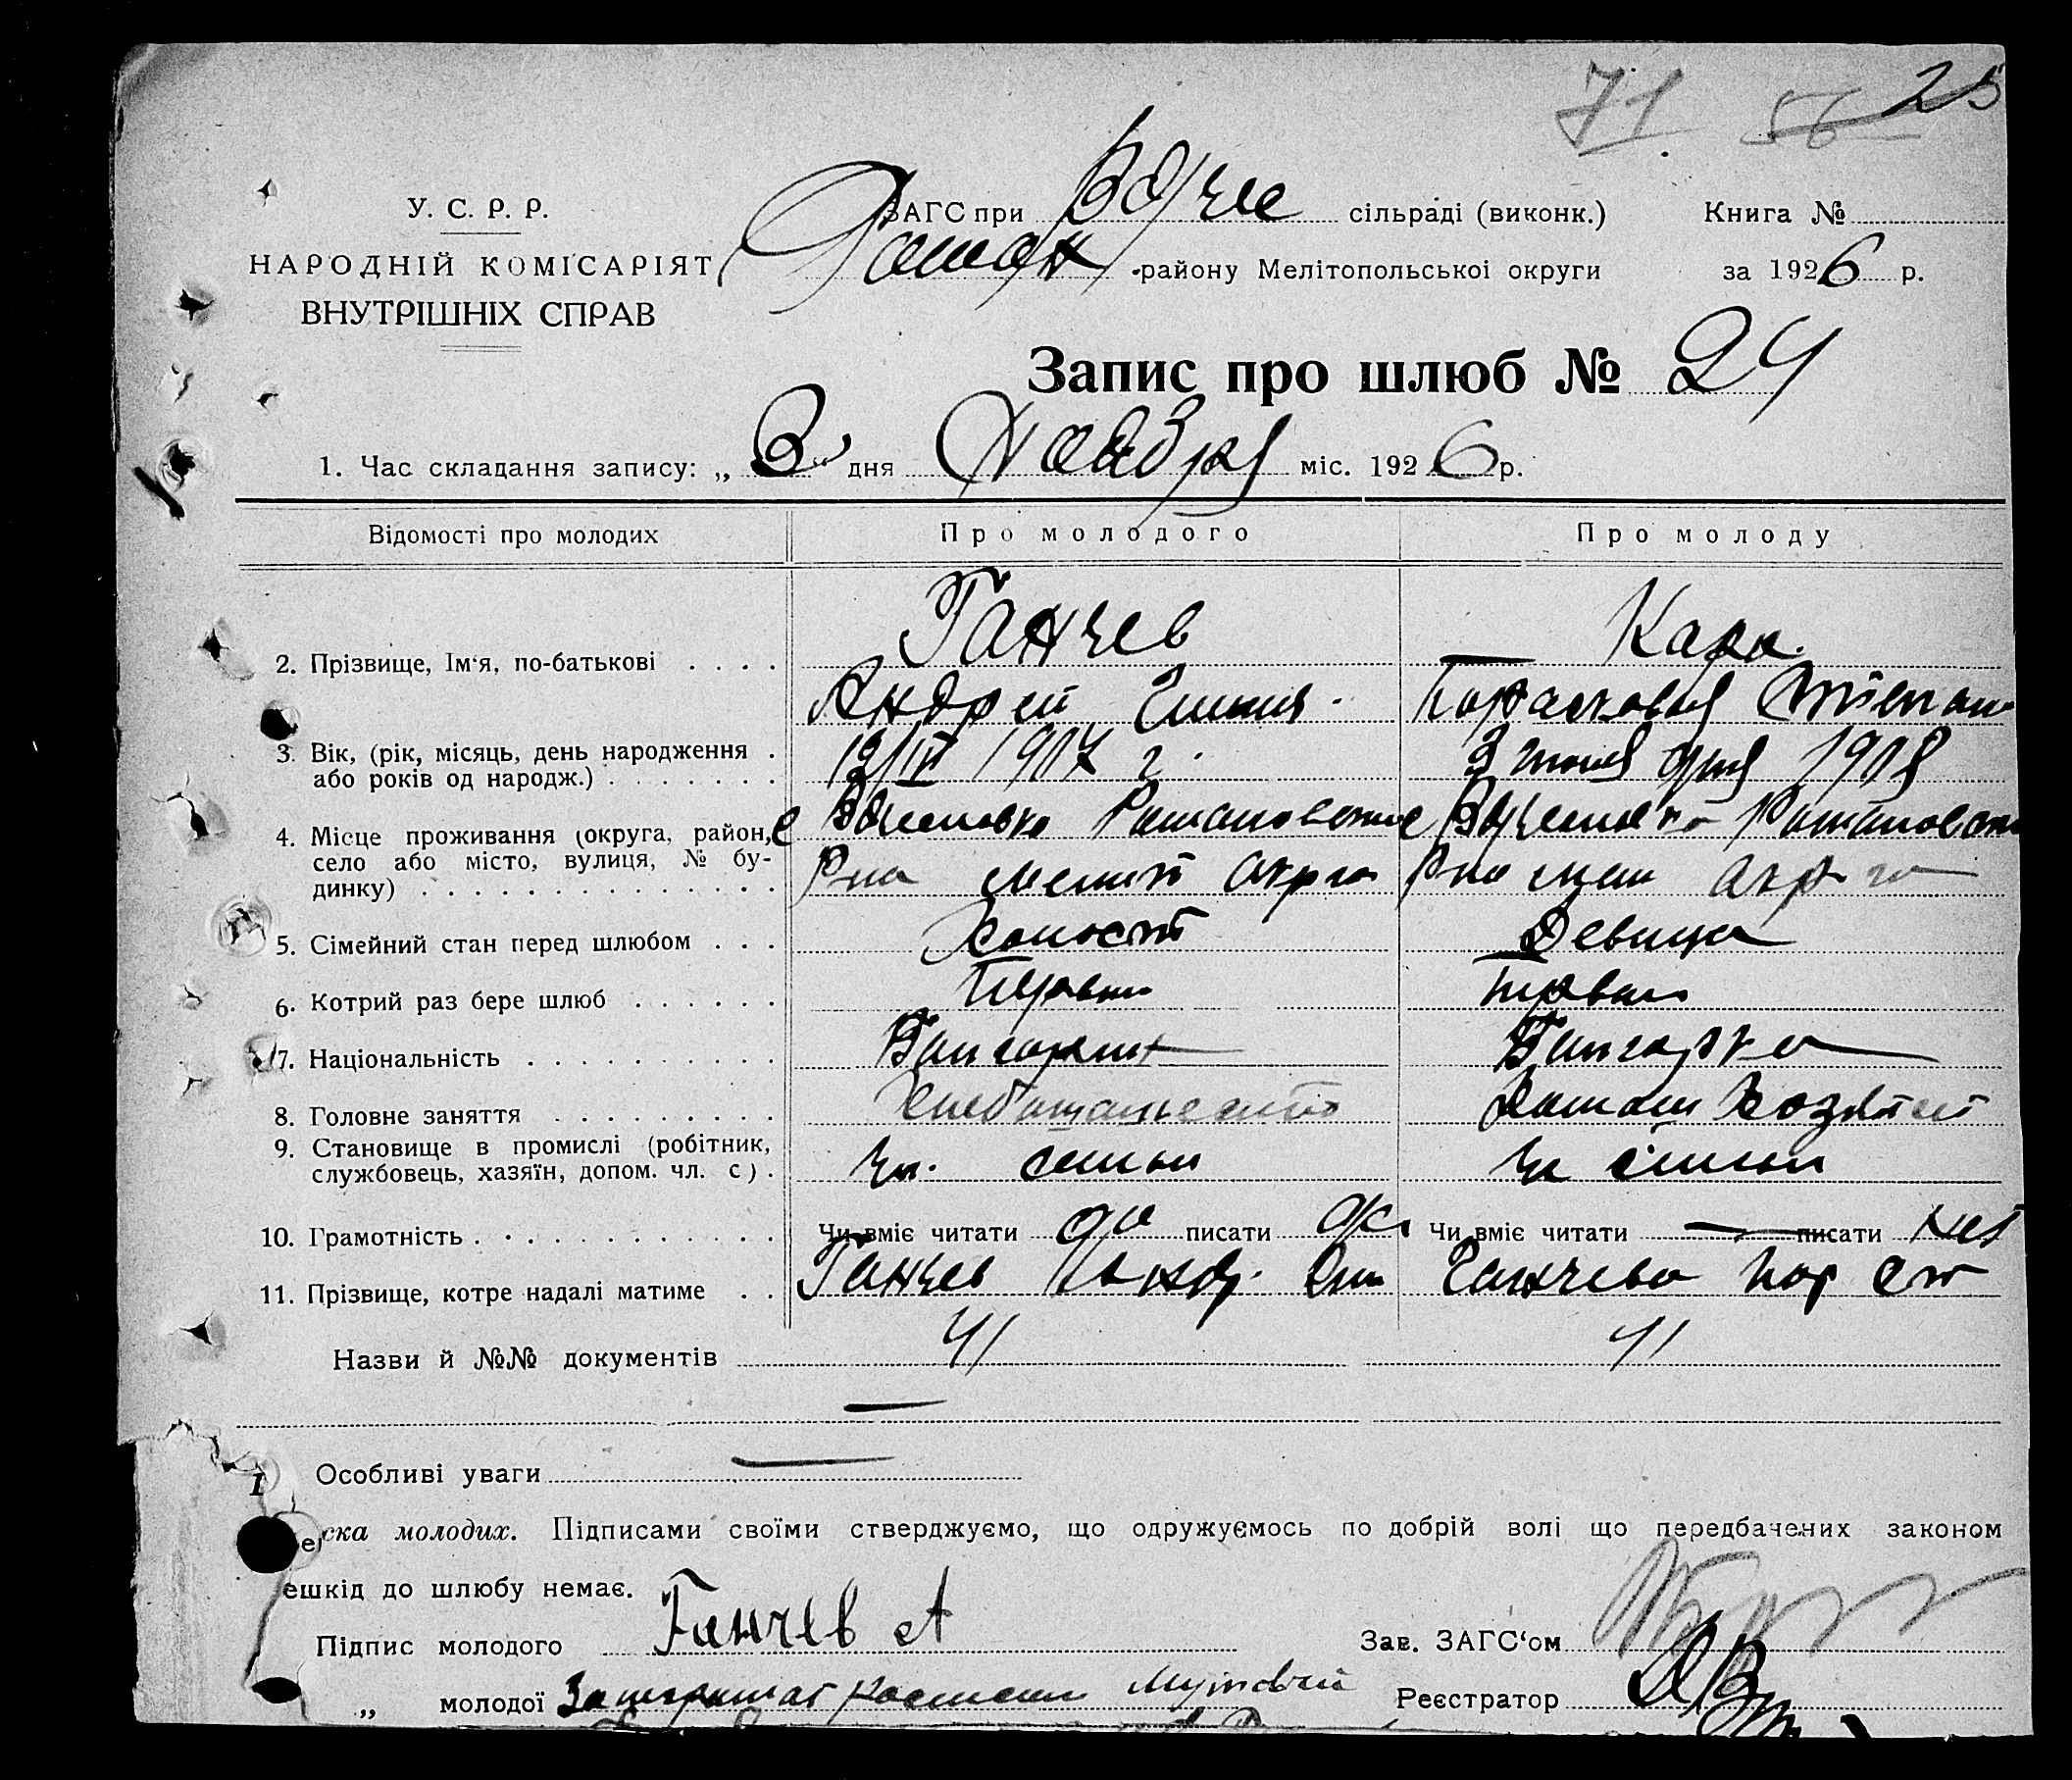 71 56 25
У. С. Р. Р.
НАРОДНІЙ КОМІСАРІЯТ
ВНУТРІШНІХ СПРАВ
ЗАГС при сільраді (виконк.) Книга №
Роман району Мелітопольської округи за 1926 р.
Запис про шлюб № 24
1. Час складання запису: „ 3 “ дня Ноября міс. 1926 р.
Відомості про молодих Про молодого Про молоду
2. Прізвище, Ім'я, по-батькові . . . . Ганчев Кара
Андрей Парасковья Степан
3. Вік, (рік, місяць, день народження .
або років од народж.) . . . . . . . 12/IV 1907 г. 3 дня 1908
4. Місце проживання (округа, район,
село або місто, вулиця, № бу-
динку) . . . . . . . . . . . . . . . Р-на мелит округа Р-на мел окр-га
5. Сімейний стан перед шлюбом . . . Холост Девица
6. Котрий раз бере шлюб . . . . . . Первый первый
7. Національність . . . . . . . . . . Болгарин Болгарка
8. Головне заняття . . . . . . . . . Домаш Хозяйст
9. Становище в промислі (робітник,
службовець, хазяїн, допом. чл. с) . Чл. семьи Чл семьи
10. Грамотність . . . . . . . . . . . . Чи вміє читати да писати да Чи вміє читати — писати нет
11. Прізвище, котре надалі матиме . . Ганчев Андр. Ганчева Пар Ст
Назви й №№ документів 41 41
Особливі уваги —
ска молодих. Підписами своїми стверджуємо, що одружуємось по добрій волі що передбачених законом
ешкід до шлюбу немає.
Підпис молодого Ганчев А Зав. ЗАГС'ом
„ молодої Реєстратор